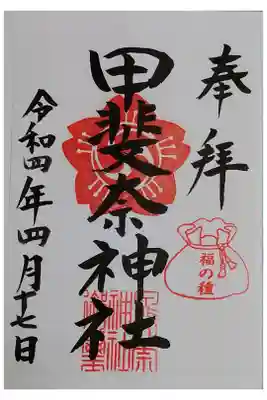 奉拝
福の種
甲斐奈神社
令和四年四月十七日